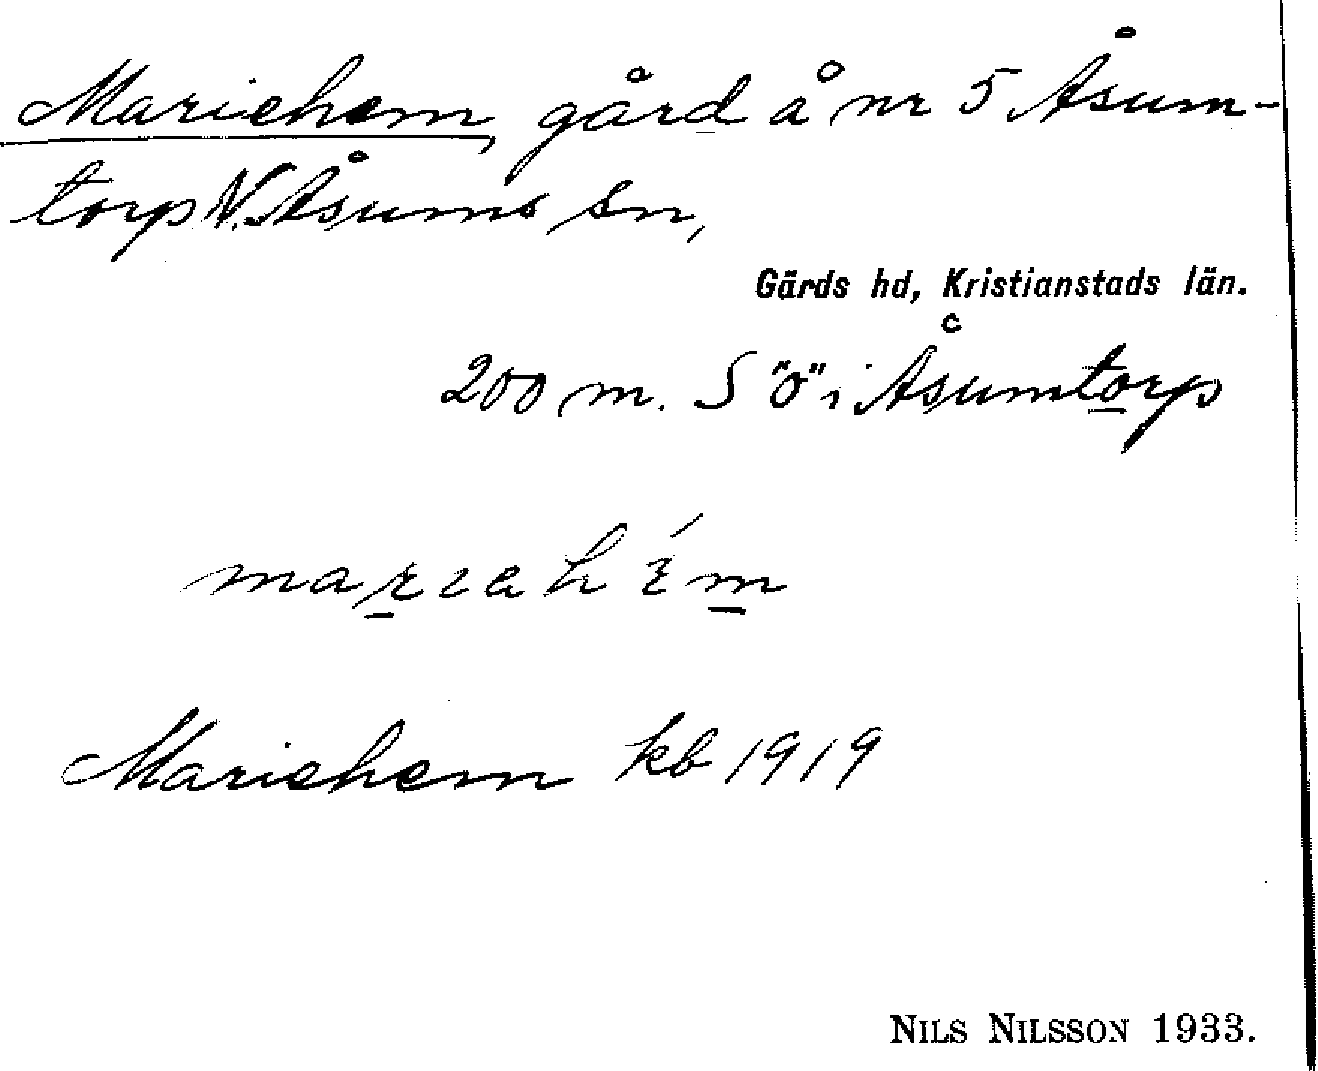 Mariehem, gård å nr 5 Åsum-
torp N. Åsums sn,
Gärds hd, Kristianstads län.
200 m. S "o" i Åsumtorp
Mariehem kb 1919
NILS NILSSON 1933.